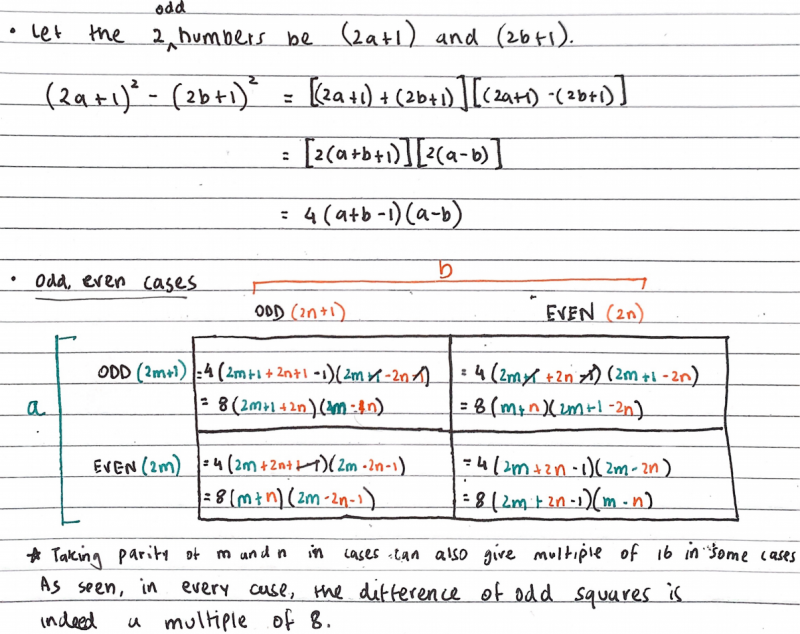 odd
• Let the 2 ^ numbers be (2a+1) and (2b+1).
(2a+1)² - (2b+1)² = [(2a+1) + (2b+1)][(2a+1) -(2b+1)]
= [2(a+b+1)][2(a-b)]
= 4(a+b-1)(a-b)
b
• Odd, even cases
ODD (2n+1) EVEN (2n)
ODD (2m+1) =4(2m+1+2n+1-1)(2m+1-2n-1) = 4(2m+1+2n-1)(2m+1-2n)
a = 8(2m+1+2n)(m-n) =8(m+n)(2m+1-2n)
EVEN (2m) =4(2m+2n+1-1)(2m-2n-1) =4(2m+2n-1)(2m-2n)
=8(m+n)(2m-2n-1) =8(2m+2n-1)(m-n)
* Taking parity of m and n in cases can also give multiple of 16 in some cases
As seen, in every case, the difference of odd squares is
indeed a multiple of 8.